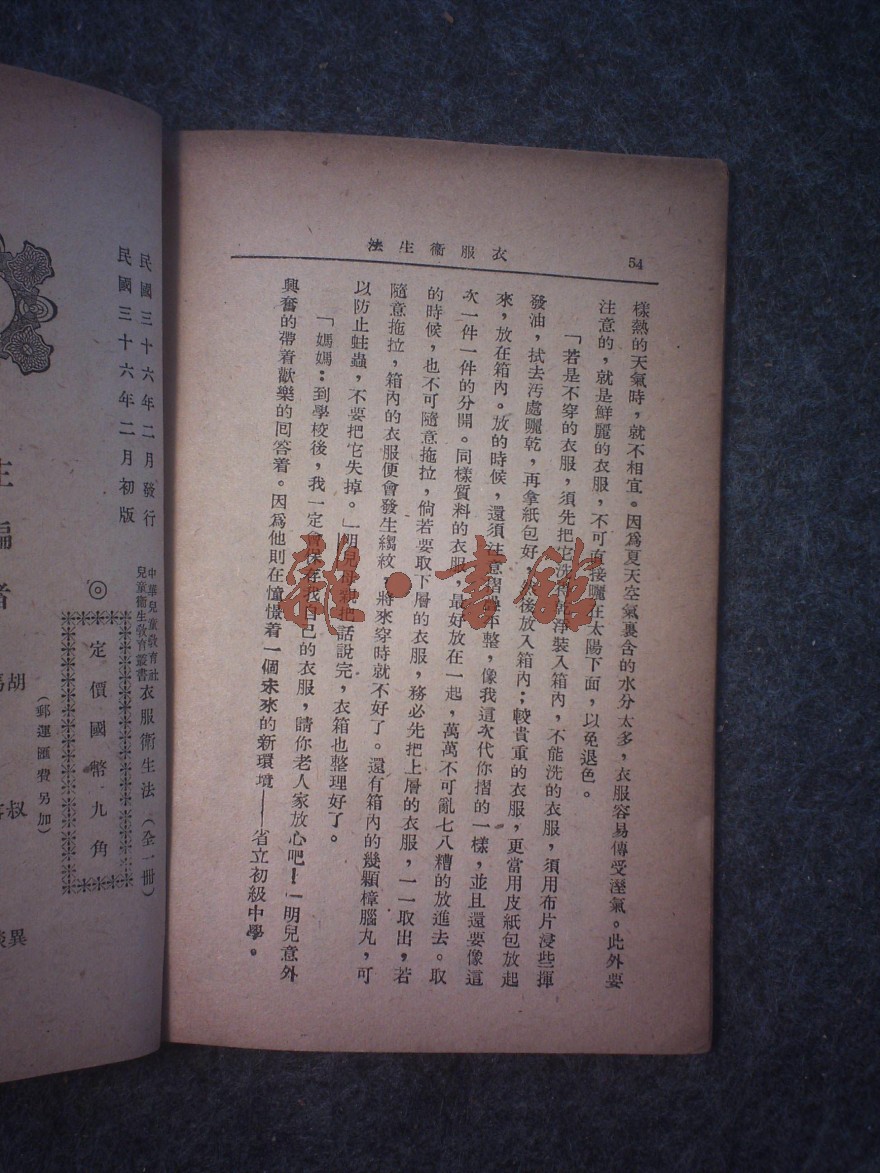 54
衣服衞生法
樣熱的天氣時，就不相宜。因爲夏天空氣裏含的水分太多，衣服容易傳受溼氣。此外要
注意的，就是鮮麗的衣服，不可直接曬在太陽下面，以免退色。
「若是不穿的衣服，須先把它洗淨裝入箱內，不能洗的衣服，須用布片浸些揮
發油，拭去汚處曬乾，再拿紙包好，後放入箱內；較貴重的衣服，更當用皮紙包放起
來，放在箱內。放的時候，還須注意摺整，像我這次代你摺的一樣，並且還要像這
次一件一件的分開。同樣質料的衣服，最好放在一起，萬萬不可亂七八糟的放進去。取
的時候，也不可隨意拖拉，倘若要取下層的衣服，務必先把上層的衣服，一一取出，若
隨意拖拉，箱內的衣服便會發生縐紋，將來穿時就不好了。還有箱內的幾顆樟腦丸，可
以防止蛀蟲，不要把它失掉。」明兒母親把話說完，衣箱也整理好了。
「媽媽：到學校後，我一定會保存我自己的衣服，請你老人家放心吧！」明兒意外
興奮的帶着歡樂的囘答着。因爲他則在憧憬着一個未來的新環境——省立初級中學。
民國三十六年二月發行
民國三十六年二月初版
中華兒童敎育社
兒童衞生敎育叢書
衣服衞生法（全一冊）
◎定價國幣九角
（郵運匯費另加）
編
者
胡
叔
異
雜·書館